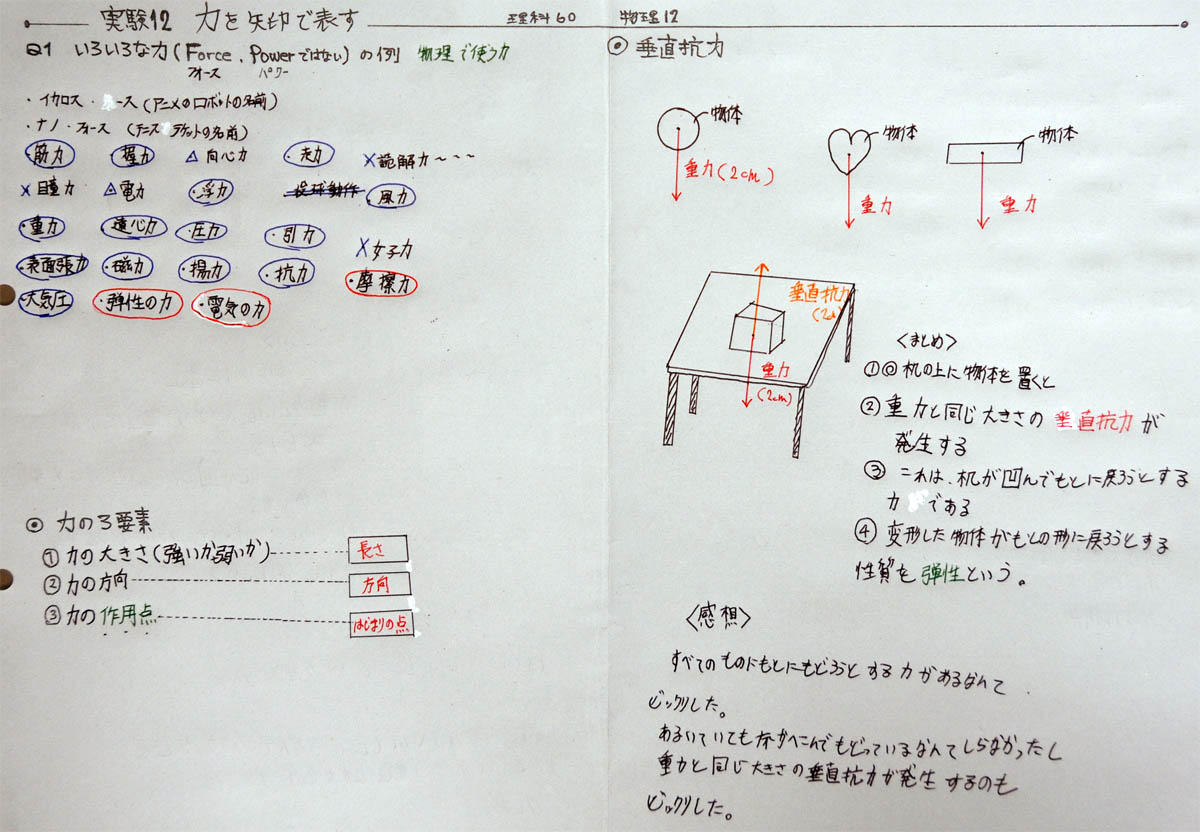 実験12 力を矢印で表す
理科60 物理12
Q1 いろいろな力(Force、Powerではない)の例 物理で使う力
フォース パワー
・イカロス・ース(アニメのロボットの名前)
・ナノ・フォース (テニスラケットの名前)
・筋力 ・握力 △向心力 ・走力 ×読解力〜〜〜
×目力 △電力 ・浮力 投球動作 ・風力
・重力 ・遠心力 ・圧力 ・引力 ×女子力
・表面張力 ・磁力 ・揚力 ・抗力 ・摩擦力
・大気圧 ・弾性の力 ・電気の力
◎ 力の3要素
①力の大きさ(強いか弱いか) 長さ
②力の方向 方向
③力の作用点 はじまりの点
◎ 垂直抗力
物体 物体 物体
重力(2cm) 重力 重力
垂直抗力
(2cm)
重力
(2cm)
〈まとめ〉
①◎机の上に物体を置くと
②重力と同じ大きさの垂直抗力が
発生する
③ これは、机が凹んでもとに戻ろうとする
力である
④ 変形した物体がもとの形に戻ろうとする
性質を弾性という。
〈感想〉
すべてのものにもとにもどろうとする力があるなんて
ビックリした。
あるいていても床がへこんでもどっているなんてしらなかったし
重力と同じ大きさの垂直抗力が発生するのも
ビックリした。